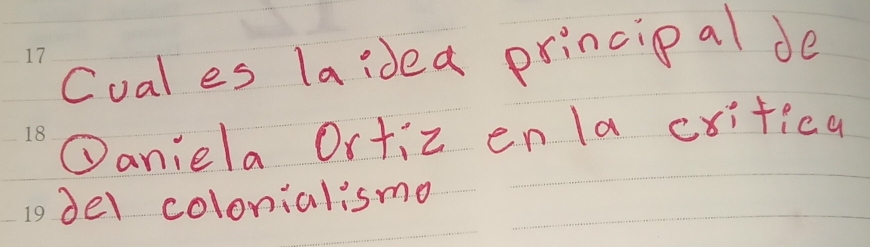 17 Cual es la idea principal de
18 Daniela Ortiz en la critica
19 del colonialismo